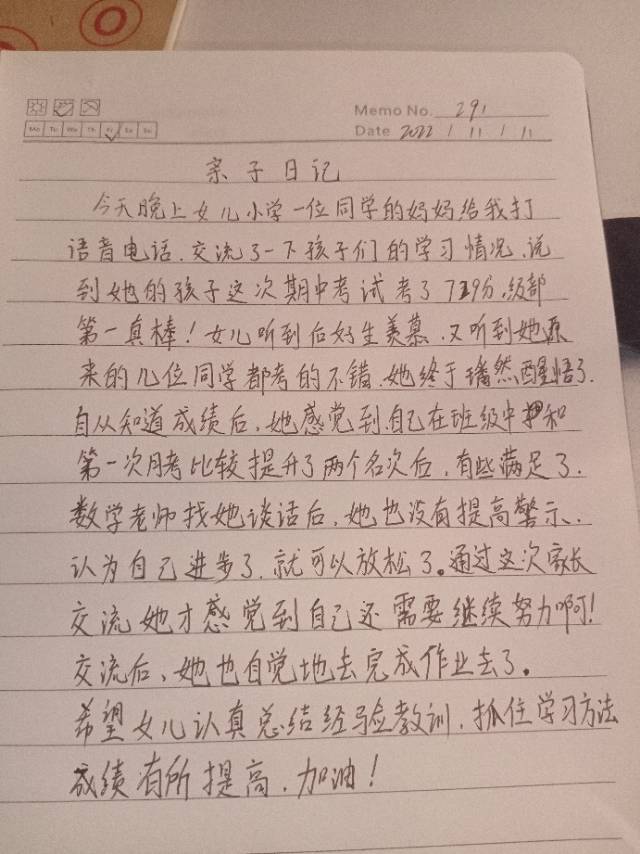 Memo No. 291
Mo Tu We Th Fr Sa Su
Date 2022 / 11 / 11
亲子日记
今天晚上女儿小学一位同学的妈妈给我打
语音电话,交流了一下孩子们的学习情况,说
到她的孩子这次期中考试考了719分,级部
第一真棒!女儿听到后好生羡慕,又听到她原
来的几位同学都考的不错,她终于璠然醒悟了.
自从知道成绩后,她感觉到自己在班级中和
第一次月考比较提升了两个名次后,有些满足了.
数学老师找她谈话后,她也没有提高警示.
认为自己进步了,就可以放松了。通过这次家长
交流她才感觉到自己还需要继续努力啊!
交流后、她也自觉地去完成作业去了。
希望女儿认真总结经验教训,抓住学习方法
成绩有所提高,加油!